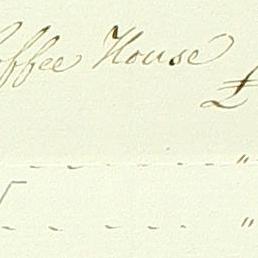 offee House
£
"
"